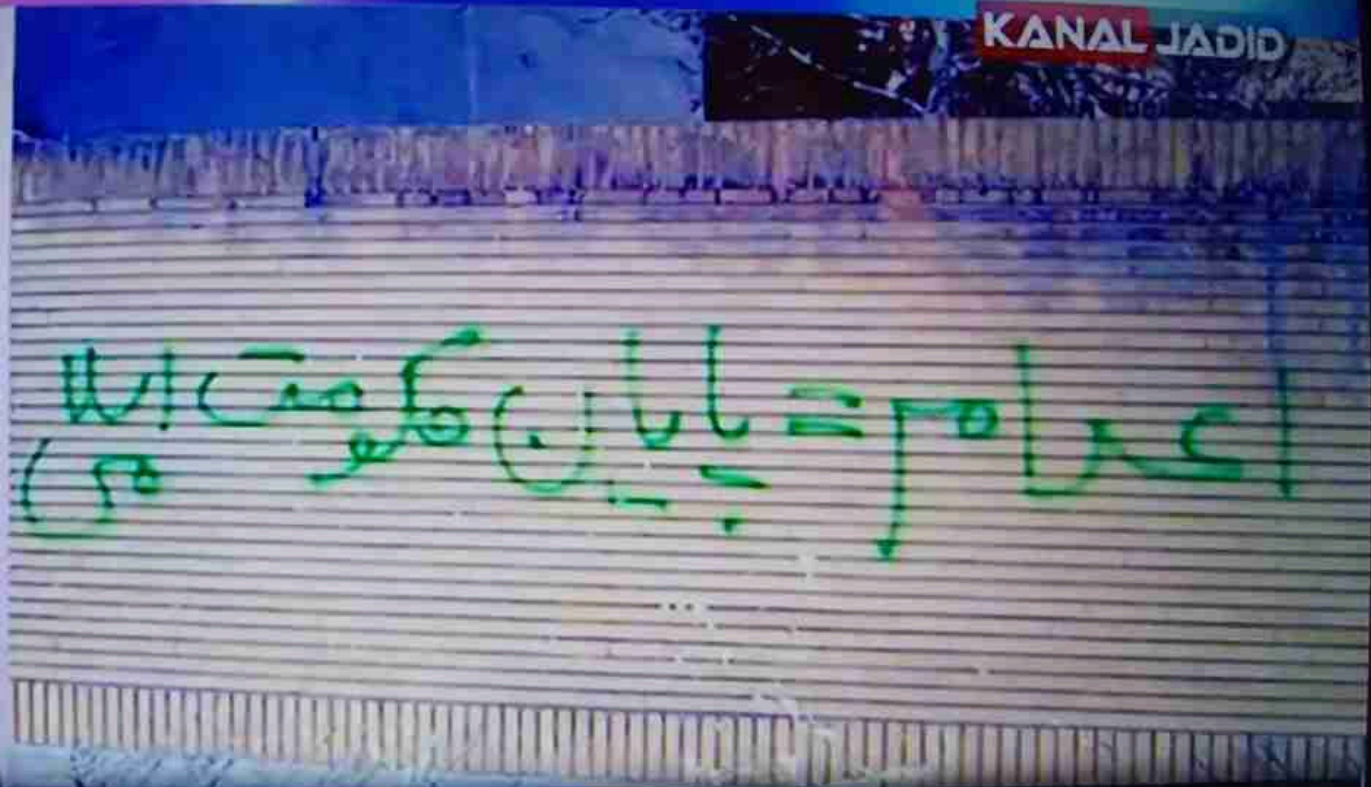 KANAL JADID
اعدام = پایان حکومت اسلا
می